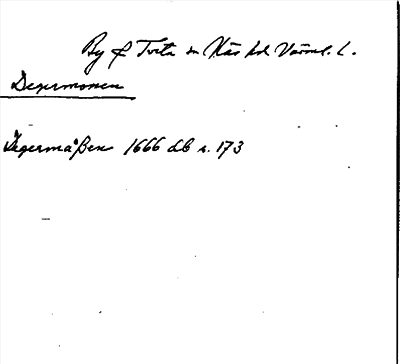 By f Tveta sn Näs hd Värml. l.
Degermossen
Degermåßen 1666 db s. 173